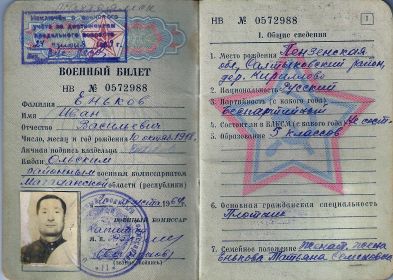 Исключён с воинского
учёта за достижением
предельного возраста
ВОЕННЫЙ БИЛЕТ
НВ № 0572988
Фамилия Еньков
Имя Иван
Отчество Васильевич
Число, месяц и год рождения 10 октяб. 19
Личная подпись владельца
Выдан Ольским
районным военным комиссариатом
Магаданской области (республики)
ВОЕННЫЙ КОМИССАР
НВ № 0572988
1
I. Общие сведения
1. Место рождения Пензенская
обл, Салтыковский район,
дер. Кириллово
2. Национальность русский
3. Партийность (с какого года)
беспартийный
4. Состоит в ВЛКСМ (с какого года) не сост.
5. Образование 5 классов
6. Основная гражданская специальность
Плотник
7. Семейное положение Женат, жена
Енькова Татьяна Семеновна